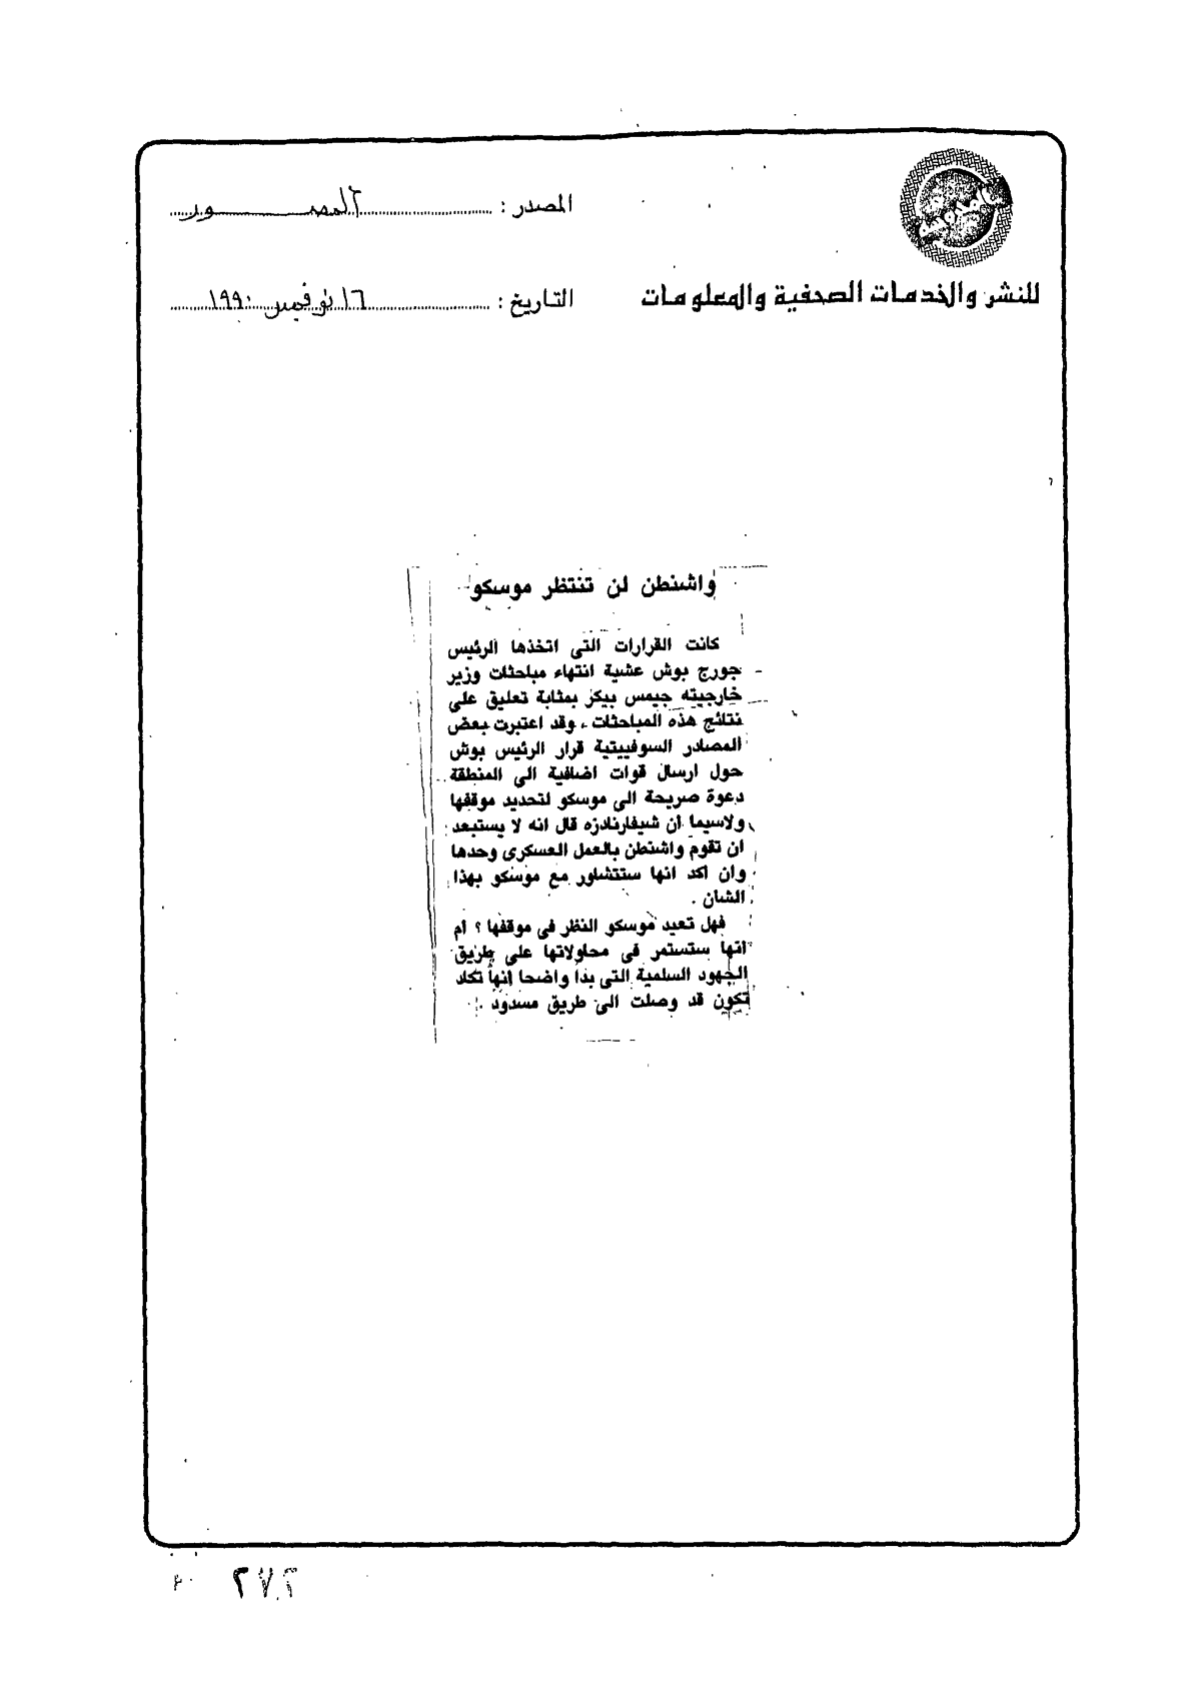 المصدر : المصــور
للنشر والخدمات الصحفية والمعلومات
التاريخ : ١٦ نوفمبر ١٩٩٠
واشنطن لن تنتظر موسكو
كانت القرارات التى اتخذها الرئيس
جورج بوش عشية انتهاء مباحثات وزير
خارجيته جيمس بيكر بمثابة تعليق على
نتائج هذه المباحثات ، وقد اعتبرت بعض
المصادر السوفييتية قرار الرئيس بوش
حول ارسال قوات اضافية الى المنطقة
دعوة صريحة الى موسكو لتحديد موقفها
ولاسيما ان شيفارنادزه قال انه لا يستبعد
ان تقوم واشنطن بالعمل العسكرى وحدها
وان اكد انها ستتشاور مع موسكو بهذا
الشان .
فهل تعيد موسكو النظر فى موقفها ؟ ام
انها ستستمر فى محاولاتها على طريق
الجهود السلمية التى بدا واضحا انها تكاد
تكون قد وصلت الى طريق مسدود .